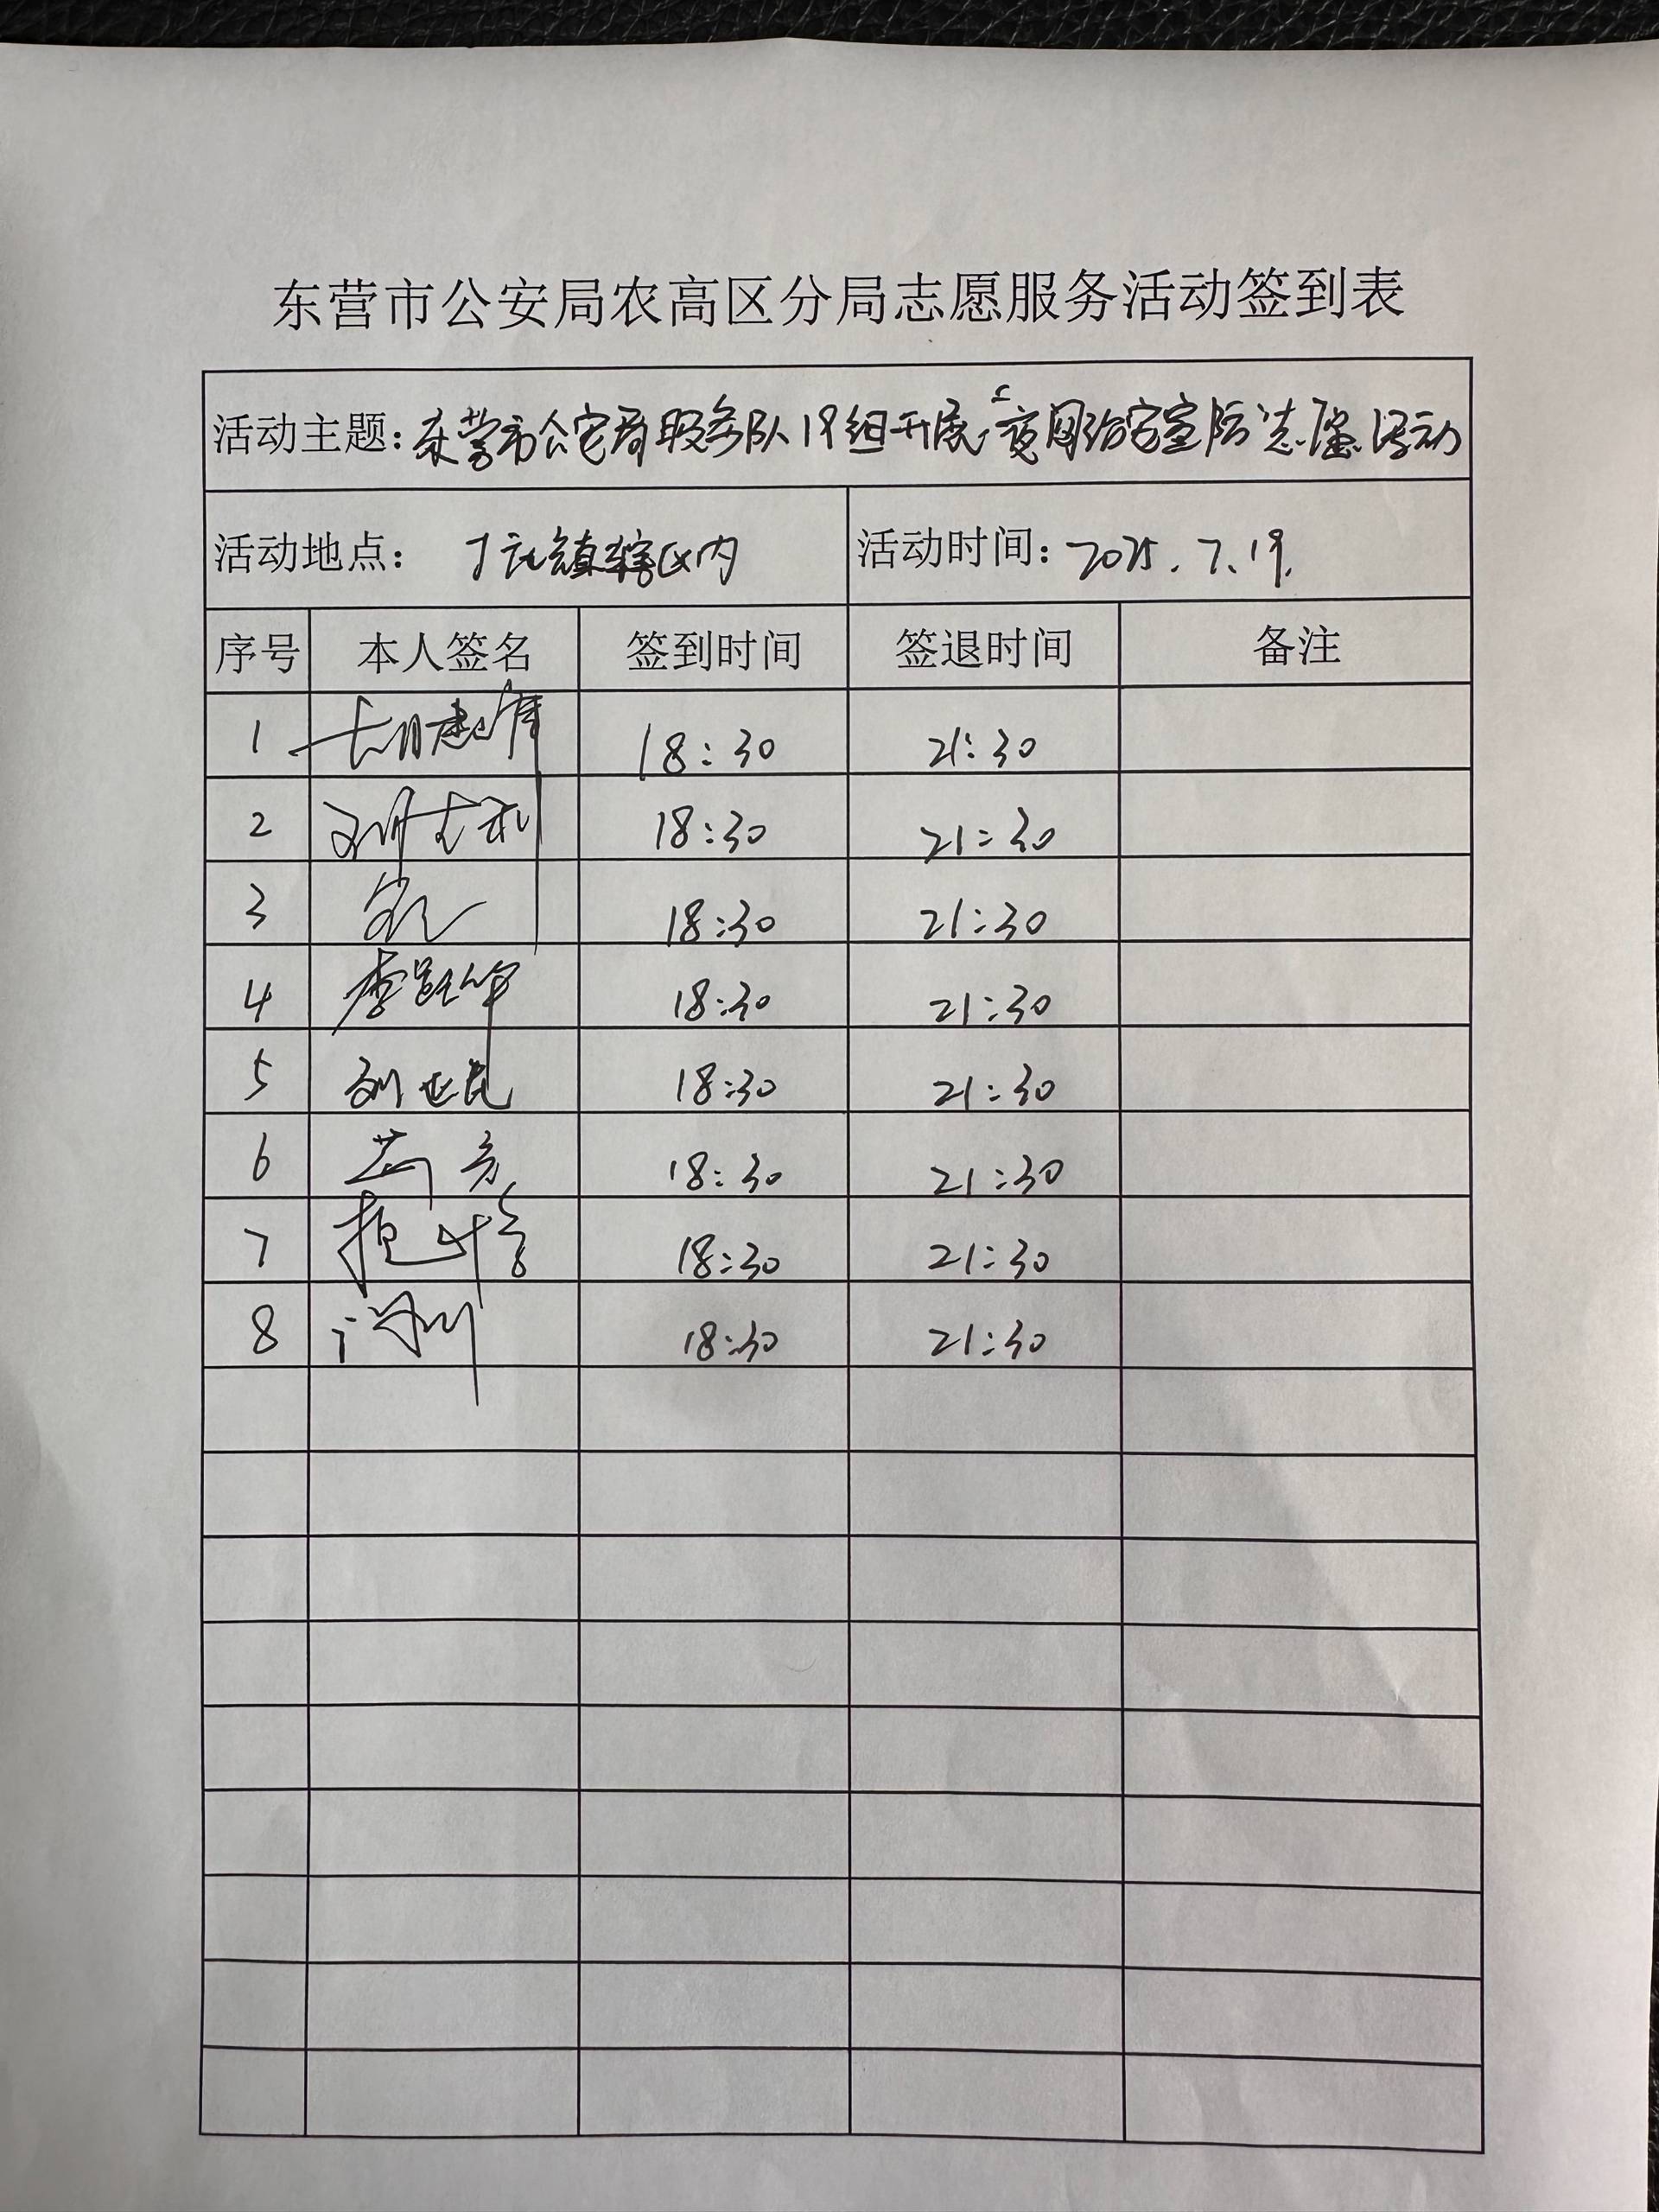 东营市公安局农高区分局志愿服务活动签到表
活动主题：东营市公安局服务队19组开展"夜间治安宣防志愿活动
活动地点： 丁庄镇辖区内 活动时间：2025.7.19.
序号 本人签名 签到时间 签退时间 备注
1 18:30 21:30
2 18:30 21:30
3 18:30 21:30
4 18:30 21:30
5 刘世民 18:30 21:30
6 18:30 21:30
7 18:30 21:30
8 18:30 21:30